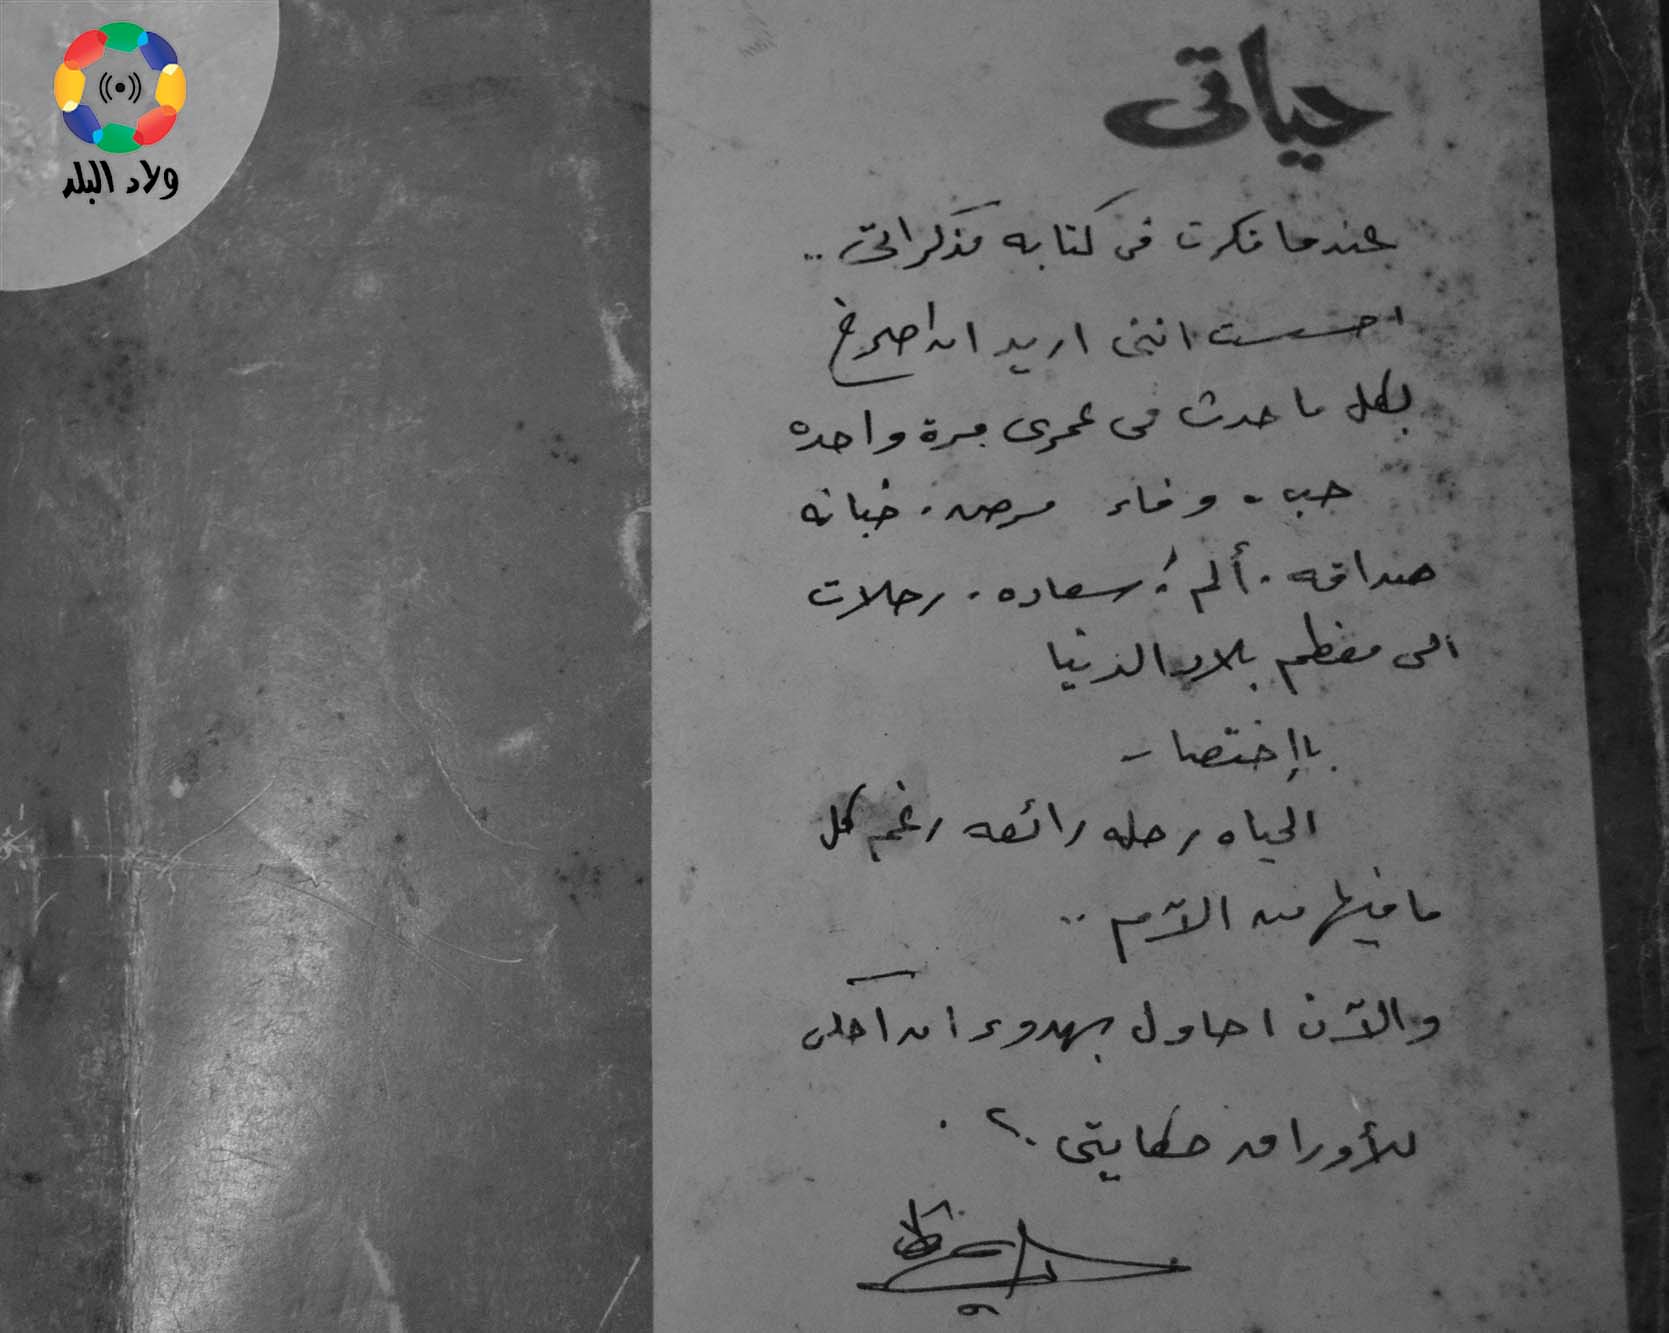 ولاد البلد
حياتى
عندما فكرت فى كتابه مذكراتى ..
احسست اننى اريد ان اصرخ
بكل ما حدث فى عمرى مرة واحده
حب - وفاء مرض . خيانه
صداقه . ألم . سعاده . رحلات
الى معظم بلاد الدنيا
بإختصار
الحياه رحله رائعه رغم كل
ما فيها من الآم ..
والآن احاول بهدوء ان احكى
للأوراق حكايتى .